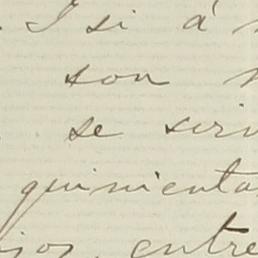 I si á
son
se
quinienta
jos, entre